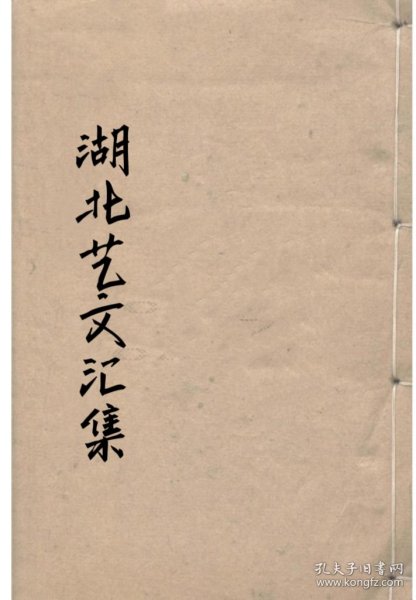 湖北艺文汇集
孔夫子旧书网
www.kongfz.com